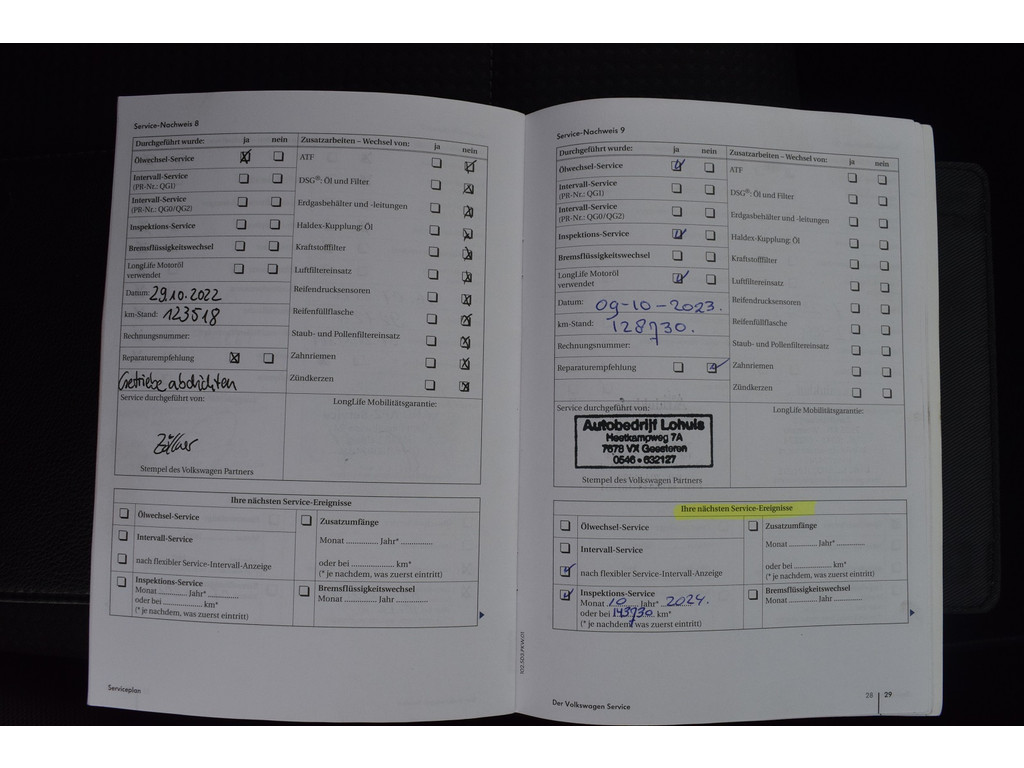 Service-Nachweis 8
Durchgeführt wurde: ja nein
Ölwechsel-Service
Intervall-Service
(PR-Nr.: QG1)
Intervall-Service
(PR-Nr.: QG0/QG2)
Inspektions-Service
Bremsflüssigkeitswechsel
LongLife Motoröl
verwendet
Datum: 29.10.2022
km-Stand: 123518
Rechnungsnummer:
Reparaturempfehlung
Getriebe abdichten
Service durchgeführt von:
Zöllner
Stempel des Volkswagen Partners
Zusatzarbeiten – Wechsel von: ja nein
ATF
DSG®: Öl und Filter
Erdgasbehälter und -leitungen
Haldex-Kupplung: Öl
Kraftstofffilter
Luftfiltereinsatz
Reifendrucksensoren
Reifenfüllflasche
Staub- und Pollenfiltereinsatz
Zahnriemen
Zündkerzen
LongLife Mobilitätsgarantie:
Ihre nächsten Service-Ereignisse
Ölwechsel-Service
Intervall-Service
nach flexibler Service-Intervall-Anzeige
Inspektions-Service
Monat ............ Jahr* ............
oder bei ............ km*
(* je nachdem, was zuerst eintritt)
Zusatzumfänge
Monat ............ Jahr* ............
oder bei ............ km*
(* je nachdem, was zuerst eintritt)
Bremsflüssigkeitswechsel
Monat ............ Jahr ............
Serviceplan
Service-Nachweis 9
Durchgeführt wurde: ja nein
Ölwechsel-Service
Intervall-Service
(PR-Nr.: QG1)
Intervall-Service
(PR-Nr.: QG0/QG2)
Inspektions-Service
Bremsflüssigkeitswechsel
LongLife Motoröl
verwendet
Datum: 09-10-2023.
km-Stand: 128730.
Rechnungsnummer:
Reparaturempfehlung
Service durchgeführt von:
Autobedrijf Lohuis
Heetkampweg 7A
7678 VX Geesteren
0546 • 632127
Stempel des Volkswagen Partners
Zusatzarbeiten – Wechsel von: ja nein
ATF
DSG®: Öl und Filter
Erdgasbehälter und -leitungen
Haldex-Kupplung: Öl
Kraftstofffilter
Luftfiltereinsatz
Reifendrucksensoren
Reifenfüllflasche
Staub- und Pollenfiltereinsatz
Zahnriemen
Zündkerzen
LongLife Mobilitätsgarantie:
Ihre nächsten Service-Ereignisse
Ölwechsel-Service
Intervall-Service
nach flexibler Service-Intervall-Anzeige
Inspektions-Service
Monat 10 Jahr* 2024.
oder bei 143730 km*
(* je nachdem, was zuerst eintritt)
Zusatzumfänge
Monat ............ Jahr* ............
oder bei ............ km*
(* je nachdem, was zuerst eintritt)
Bremsflüssigkeitswechsel
Monat ............ Jahr ............
Der Volkswagen Service
28 | 29